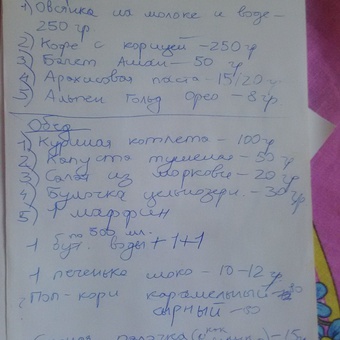 1) Овсянка на молоке и воде -
250 гр
2) Кофе с корицей - 250 гр
3) Багет Ашан - 50 гр
4) Арахисовая паста - 15/20 гр
5) Альпен Гольд Орео - 8 гр
Обед
1) Куриная котлета - 100 гр
2) Капуста тушеная - 50 гр
3) Салат из моркови - 20 гр
4) Булочка цельнозерн. - 30 гр
5) 1 маффин
1 бут. по 500 мл. воды + 1 + 1
1 печенько шоко - 10-12 гр
Поп-корн карамельный - 50
сырный - 50
палочка